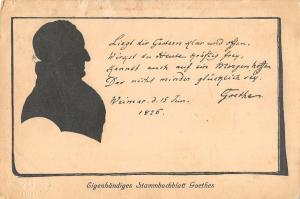 Liegt dir Gestern klar und offen,
Wirkst du Heute kräftig frey,
Kannst auch auf ein Morgen hoffen
Das nicht minder glücklich sey.
Weimar d. 15 Jun.
1826.
Goethe
Eigenhändiges Stammbuchblatt Goethes